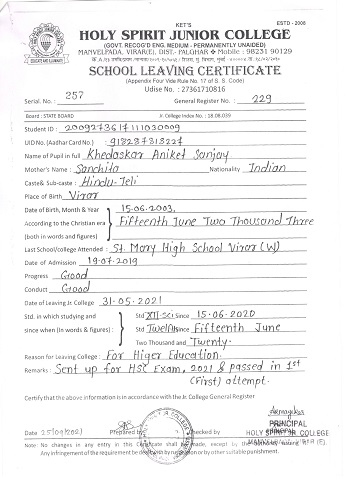 KET'S
ESTD - 2008
HOLY SPIRIT JUNIOR COLLEGE
(GOVT. RECOG'D ENG. MEDIUM - PERMANENTLY UNAIDED)
MANVELPADA, VIRAR(E), DIST.- PALGHAR Mobile : 98231 90129
SCHOOL LEAVING CERTIFICATE
(Appendix Four Vide Rule No. 17 of S. S. Code)
Udise No. : 27361710816
Serial No. : 257 General Register No. : 229
Board : STATE BOARD Jr. College Index No. : 18.08.039
Student ID : 2009273617111030009
UID No. (Aadhar Card No.) : 918287313227
Name of Pupil in full Khedaskar Aniket Sanjay
Mother's Name : Sanchita Nationality Indian
Caste& Sub-caste : Hindu-Teli
Place of Birth Virar
Date of Birth, Month & Year 15.06.2003,
According to the Christian era Fifteenth June Two Thousand Three
(both in words and figures)
Last School/college Attended : St. Mary High School Virar (W)
Date of Admission 19.07.2019
Progress Good
Conduct Good
Date of Leaving Jr. College 31-05-2021
Std. in which studying and Std XII-Sci Since 15-06-2020
since when (In words & figures) : Std Twelth Since Fifteenth June
Two Thousand and Twenty.
Reason for Leaving College : For Higer Education.
Remarks : Sent up for HSC Exam, 2021 & passed in 1st
(First) attempt.
Certify that the above information is in accordance with the Jr. College General Register
Date 25/09/2021 Prepared by Checked by
PRINCIPAL
HOLY SPIRIT JR COLLEGE
Note : No changes in any entry in this Certificate shall be made, except by the
Any infringement of the requirement be dealt with by rustication or by other suitable punishment.